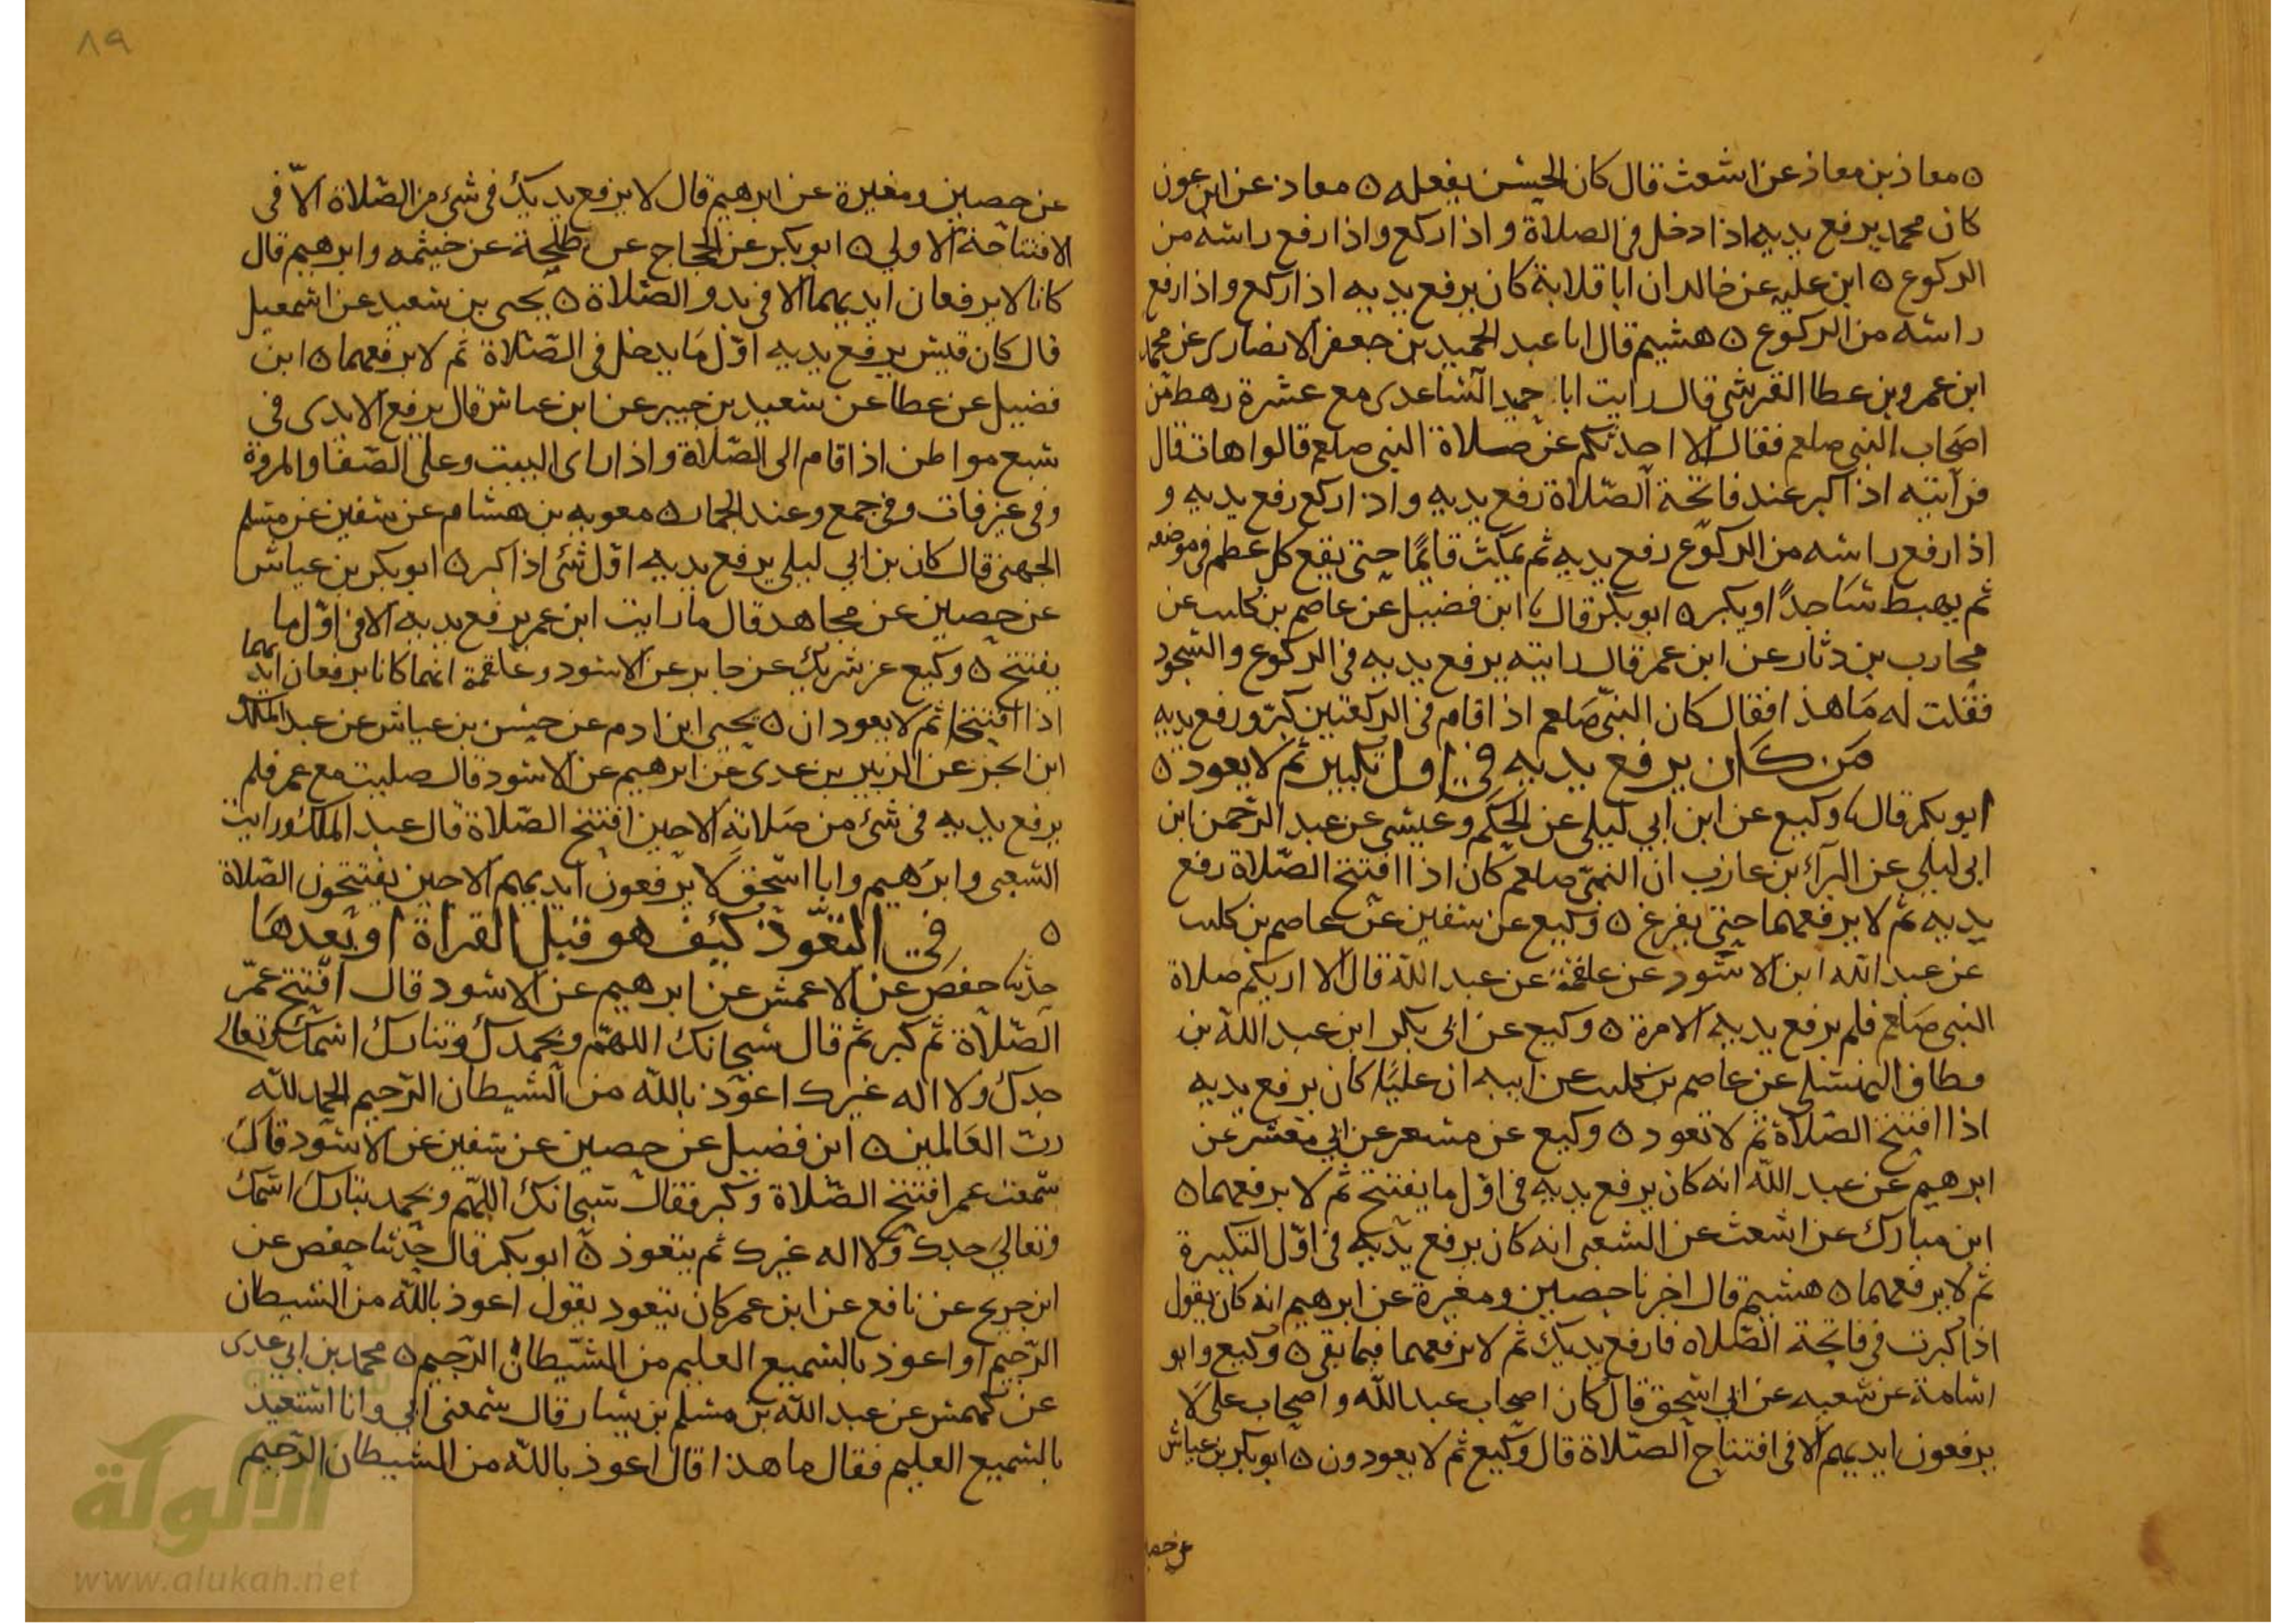 ه معاذ بن معاذ عن اشعث قال كان الحسن يفعله ه معاذ عن ابن عون
كان محمد يرفع يديه اذا دخل في الصلاة و اذا ركع و اذا رفع راسه من
الركوع ه ابن عليه عن خالد ان ابا قلابة كان يرفع يديه اذا ركع و اذا رفع
راسه من الركوع ه هشيم قال انا عبد الحميد بن جعفر الانصاري عن محمد
ابن عمرو بن عطا القرشي قال رايت ابا حميد الساعدي مع عشرة رهط من
اصحاب النبي صلعم فقال الا احدثكم عن صلاة النبي صلعم قالوا هات قال
فرأيته اذا كبر عند فاتحة الصّلاة رفع يديه و اذا ركع رفع يديه و
اذا رفع راسه من الركوع رفع يديه ثم يمكث قائمًا حتى يقع كل عظم في موضعه
ثم يهبط ساجدًا ويكبر ه ابو بكر قال ابن فضيل عن عاصم بن كليب عن
محارب بن دثار عن ابن عمر قال رايته يرفع يديه في الركوع والسجود
فقلت له مَا هذا فقال كان النبي صَلعم اذا قام في الركعتين كبّر ورفع يديه
مَن كَان يرفع يديه في اول تكبير ثم لا يعود ه
ابو بكر قال وكيع عن ابن ابي ليلى عن الحكم وعيسى عن عبد الرحمن ابن
ابي ليلى عن البرآء بن عازب ان النبي صلعم كان اذا افتتح الصّلاة رفع
يديه ثم لا يرفعهما حتى يفرغ ه وكيع عن سفين عن عاصم بن كليب
عن عبد الله ابن الاسود عن علقمة عن عبد الله قال الا اريكم صلاة
النبي صَلعم فلم يرفع يديه الا مرة ه وكيع عن ابي بكر ابن عبد الله بن
قطاف النهشلي عن عاصم بن كليب عن ابيه ان عليًا كان يرفع يديه
اذا افتتح الصّلاة ثم لا تعود ه وكيع عن مسعر عن ابي معشر عن
ابرهيم عن عبد الله انه كان يرفع يديه في اوّل ما يفتتح ثم لا يرفعهما ه
ابن مبارك عن اشعث عن الشعبي انه كان يرفع يديه في اوّل التكبيرة
ثم لا يرفعهما ه هشيم قال اخرنا حصين ومغيرة عن ابرهيم انه كان يقول
اذا كبرت في فاتحة الصّلاه فارفع يديك ثم لا ترفعهما فيما بقى ه وكيع وابو
اسامة عن شعبه عن ابي اسحق قال كان اصحاب عبد الله و اصحاب علي لا
يرفعون ايديهم الا في افتتاح الصّلاة قال وكيع ثم لا يعودون ه ابو بكر بن عياش
عن حصين ومغيرة عن ابرهيم قال لا يرفع يديك في شئ من الصّلاة الاّ في
الافتتاحة الاولي ه ابو بكر عن الحجاج عن طلحة عن خيثمه وابرهيم قال
كانا لا يرفعان ايديهما الا في بدو الصّلاة ه يحيى بن سعيد عن اسمعيل
قال كان قيس يرفع يديه اوّل مَا يدخل في الصّلاة ثم لا يرفعهما ه ابن
فضيل عن عطا عن سعيد بن جبير عن ابن عباس قال يرفع الايدى فى
سبع مواطن اذا قام الى الصّلاة و اذا راى البيت وعلى الصّفا والمروة
وفي عرفات وفي جمع وعند الجمار ه معويه بن هشام عن سفين عن مسلم
الجهني قال كان بن ابي ليلى يرفع يديه اوّل شئ اذا كبر ه ابو بكر بن عياش
عن حصين عن مجاهد قال ما رايت ابن عمر يرفع يديه الا في اوّل ما
يفتتح ه وكيع عن شريك عن جابر عن الاسود وعلقمة انهما كانا يرفعان ايديهما
اذا افتتحا ثم لا يعودان ه يحيى ابن ادم عن حسن بن عياش عن عبد الملك
ابن ابجر عن الزبير بن عدى عن ابرهيم عن الاسود قال صليت مع عمر فلم
يرفع يديه في شئ من صَلاته الا حين افتتح الصّلاة قال عبد الملك ورايت
الشعبي وابرَهيم وابا اسحق لا يرفعون ايديهم الا حين يفتتحون الصّلاة
ه في التعوّذ كيف هو قبل القراة او بعدهَا
حدثنا حفص عن الاعمش عن ابرهيم عن الاسود قال افتتح عمر
الصّلاة ثم كبر ثم قال سبحانك اللهمّ وبحمدك وتبارك اسمك وتعالى
جدك ولا اله غيرك اعوذ بالله من الشيطان الرّجيم الحمد لله
ربّ العَالمين ه ابن فضيل عن حصين عن سفين عن الاسود قال
سَمعت عمر افتتح الصّلاة وكبر فقال سبحانك اللهم وبحمد تبارك اسمك
وتعالي جدك ولا اله غيرك ثم يتعوذ ه ابو بكر قال حدثنا حفص عن
ابن جريح عن نافع عن ابن عمر كان يتعود يقول اعوذ بالله من الشيطان
الرّجيم او اعوذ بالسميع العليم من الشّيطان الرّجيم ه محمد بن ابي عدى
عن كهمس عن عبد الله بن مسلم بن يسار قال سمعنى ابي وانا استعيد
بالسميع العليم فقال ما هذا قال اعوذ بالله من الشيطان الرّجيم
عن حصين
٨٩
الألوكة
www.alukah.net